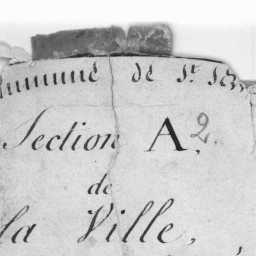 de St.
Section A. 2
de
la Ville,